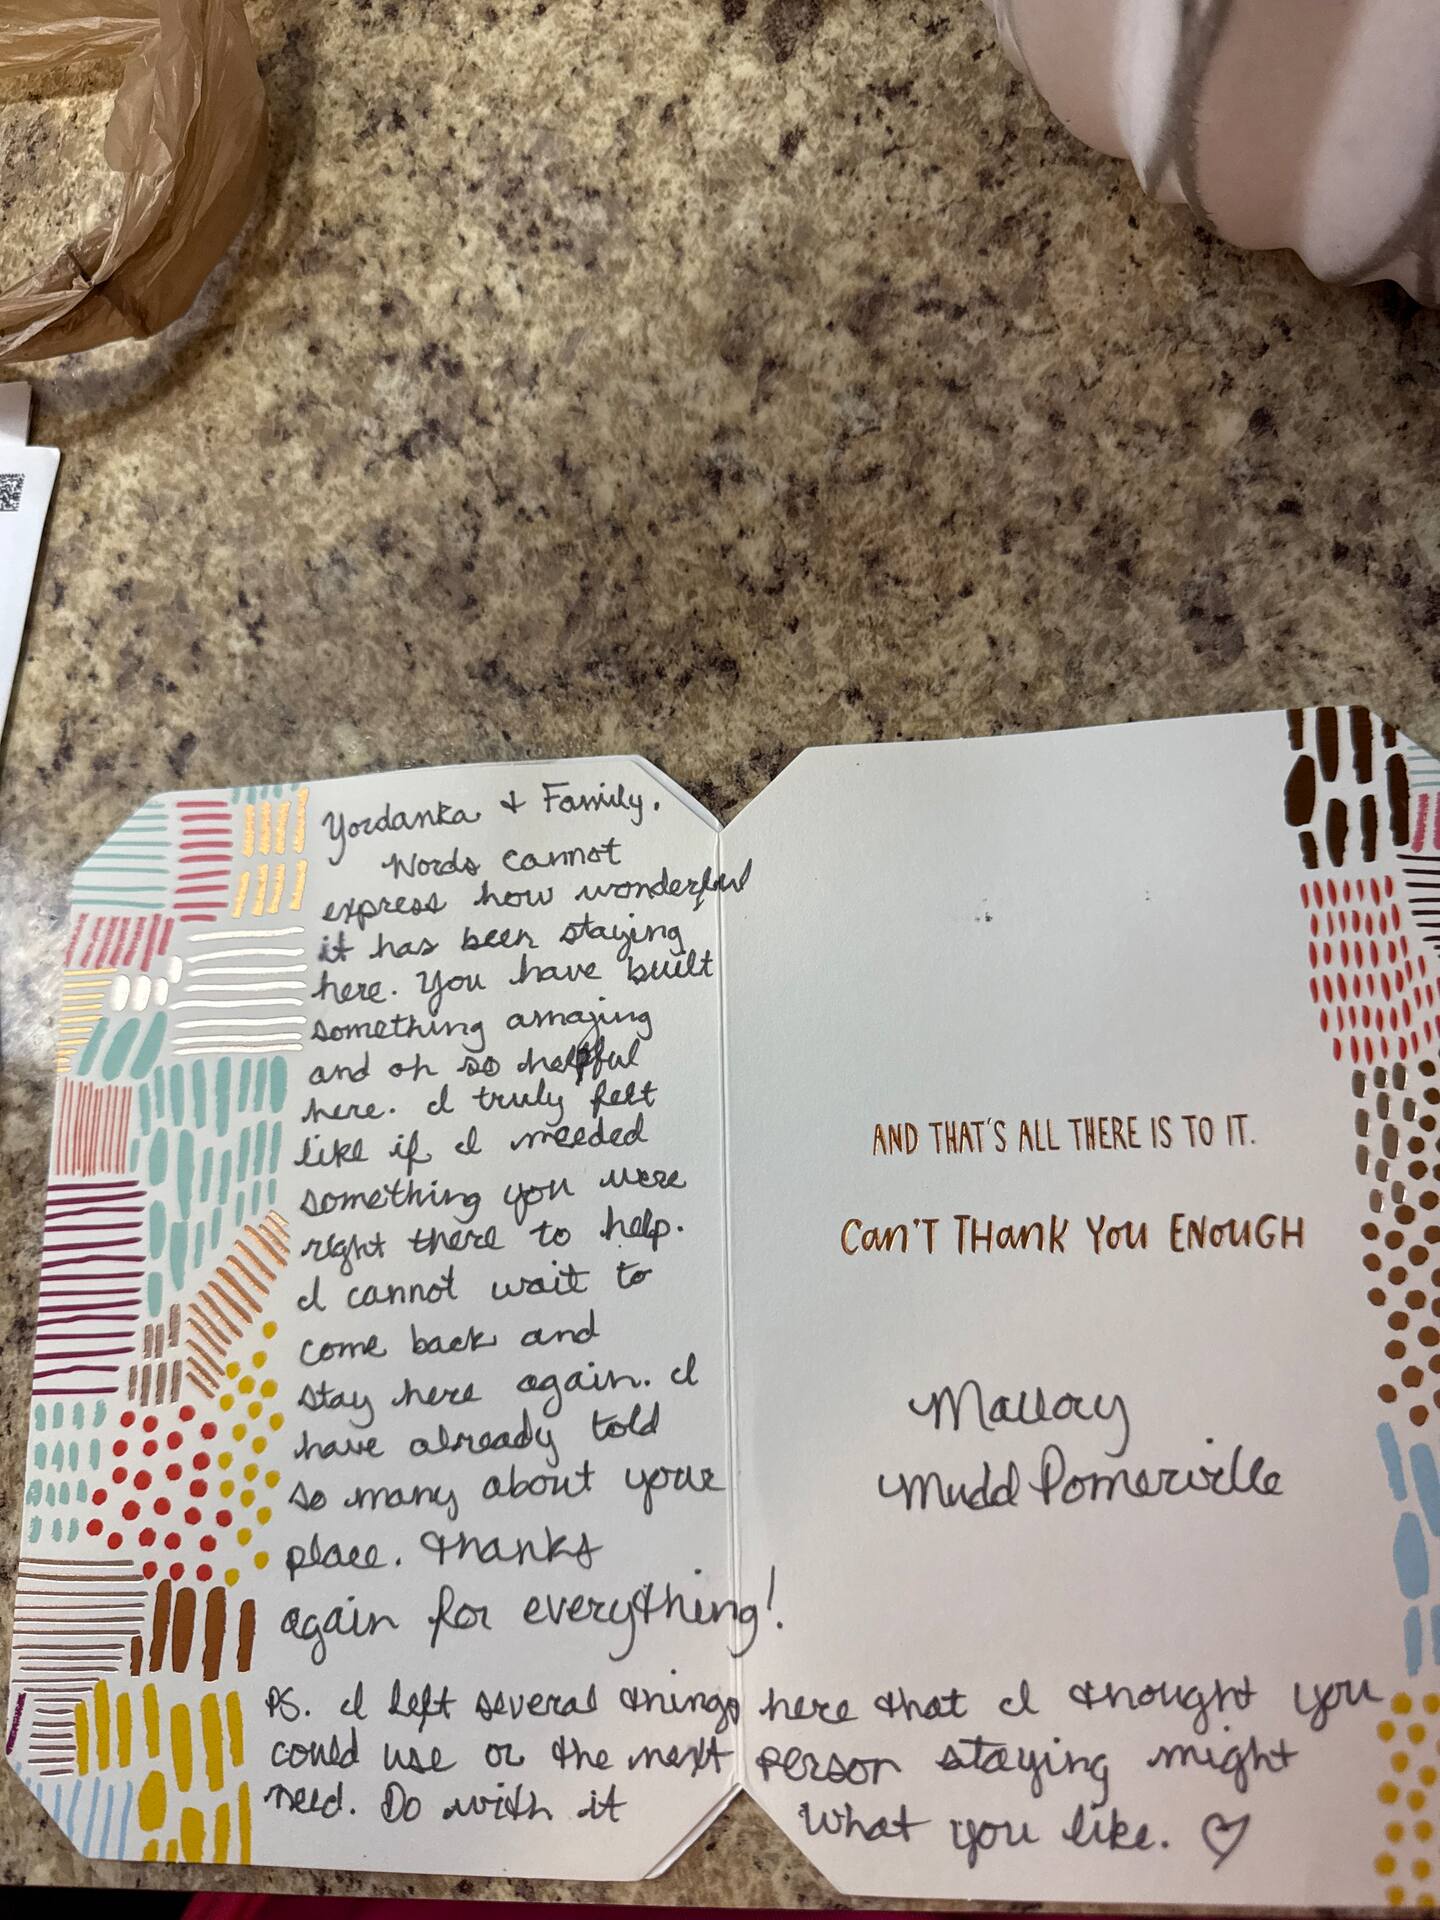 Yordanka & Family.
Words cannot
express how wonderful
it has been staying
here. You have built
something amazing
and oh so helpful
here. I truly felt
like if I needed
something you were
right there to help.
I cannot wait to
come back and
stay here again. I
have already told
so many about your
place. Thanks
again for everything!
AND THAT'S ALL THERE IS TO IT.
CAN'T THANK YOU ENOUGH
Mallory
Mudd Pomerville
PS. I left several things here that I thought you
could use or the next person staying might
need. Do with it what you like. ♡